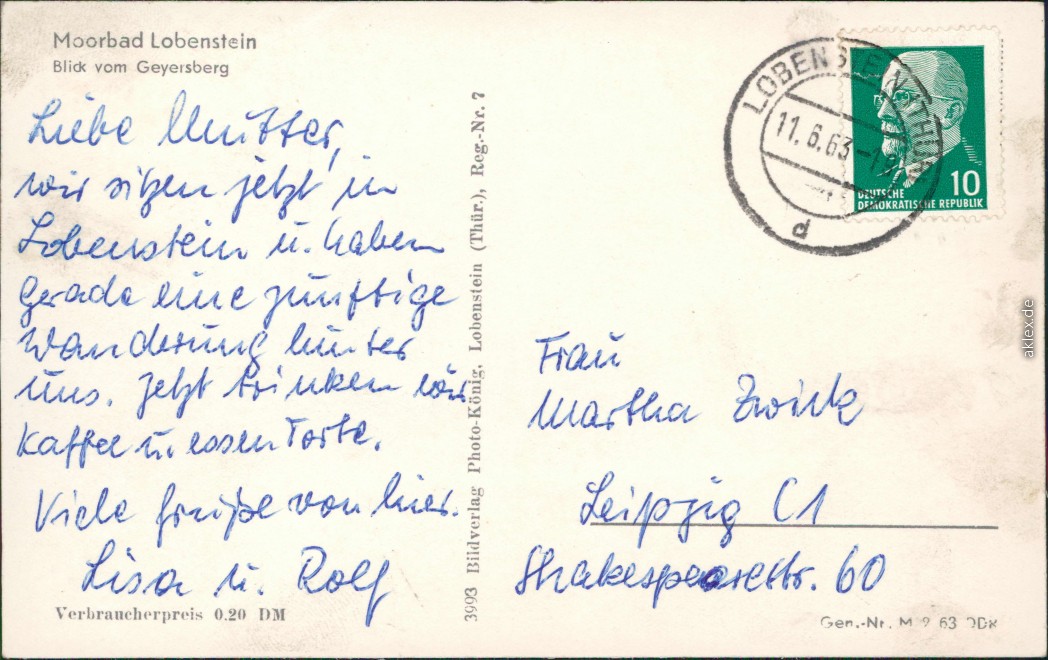 Moorbad Lobenstein
Blick vom Geyersberg
Liebe Mutter,
wir sitzen jetzt in
Lobenstein u. haben
gerade eine zünftige
Wanderung hinter
uns. Jetzt trinken wir
Kaffee u. essen Torte.
Viele Grüße von hier.
Lisa u. Rolf
Verbraucherpreis 0.20 DM
3993 Bildverlag Photo-König, Lobenstein (Thür.), Reg.-Nr. 7
LOBENSTEIN (THÜR)
11.6.63-19
d
10
DEUTSCHE
DEMOKRATISCHE REPUBLIK
Frau
Martha Zwink
Leipzig C1
Shakespearestr. 60
Gen.-Nr. M 2 63 DDR
aklex.de